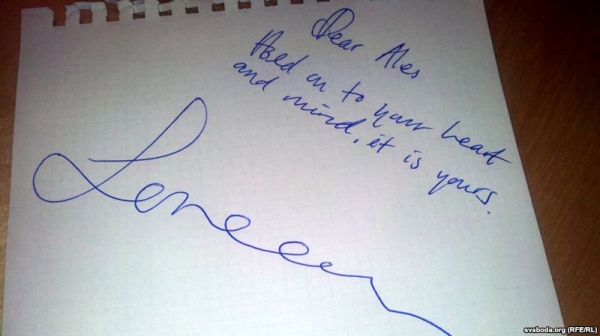 Dear Ales
Hold on to your heart
and mind, it is yours.
Loreen
svaboda.org (RFE/RL)